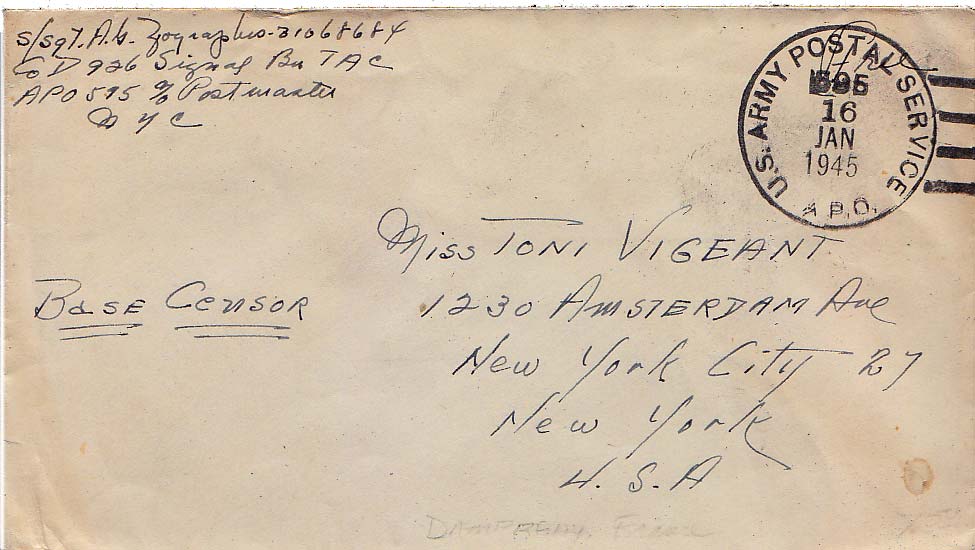 S/Sgt. A.G. Zographos-31068684
Co D 926 Signal Bn TAC
APO 595 c/o Postmaster
N Y C
Free
U.S. ARMY POSTAL SERVICE
595
16
JAN
1945
A.P.O.
Miss TONI VIGEANT
BASE CENSOR
1230 AMSTERDAM Ave
New York City 27
New York
U.S.A